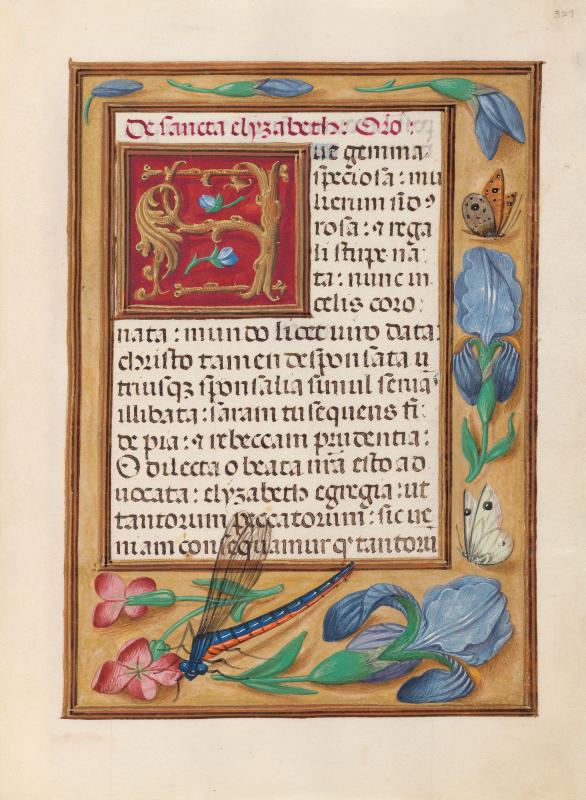 327
De sancta elyzabeth: Oro:
Aue gemma
speciosa: mu
lierum sid9
rosa: ⁊ rega
li stirpe na
ta: nunc in
celis coro
nata: mundo licet uiro data:
christo tamen desponsata u
triusqz sponsalia simul seruās
illibata: saram tu sequens fi
de pia: ⁊ rebeccam prudentia:
O dilecta o beata nr̄a esto ad
uocata: elyzabeth egregia: ut
tantorum peccatorum: sic ue
niam consequamur q' tantorū